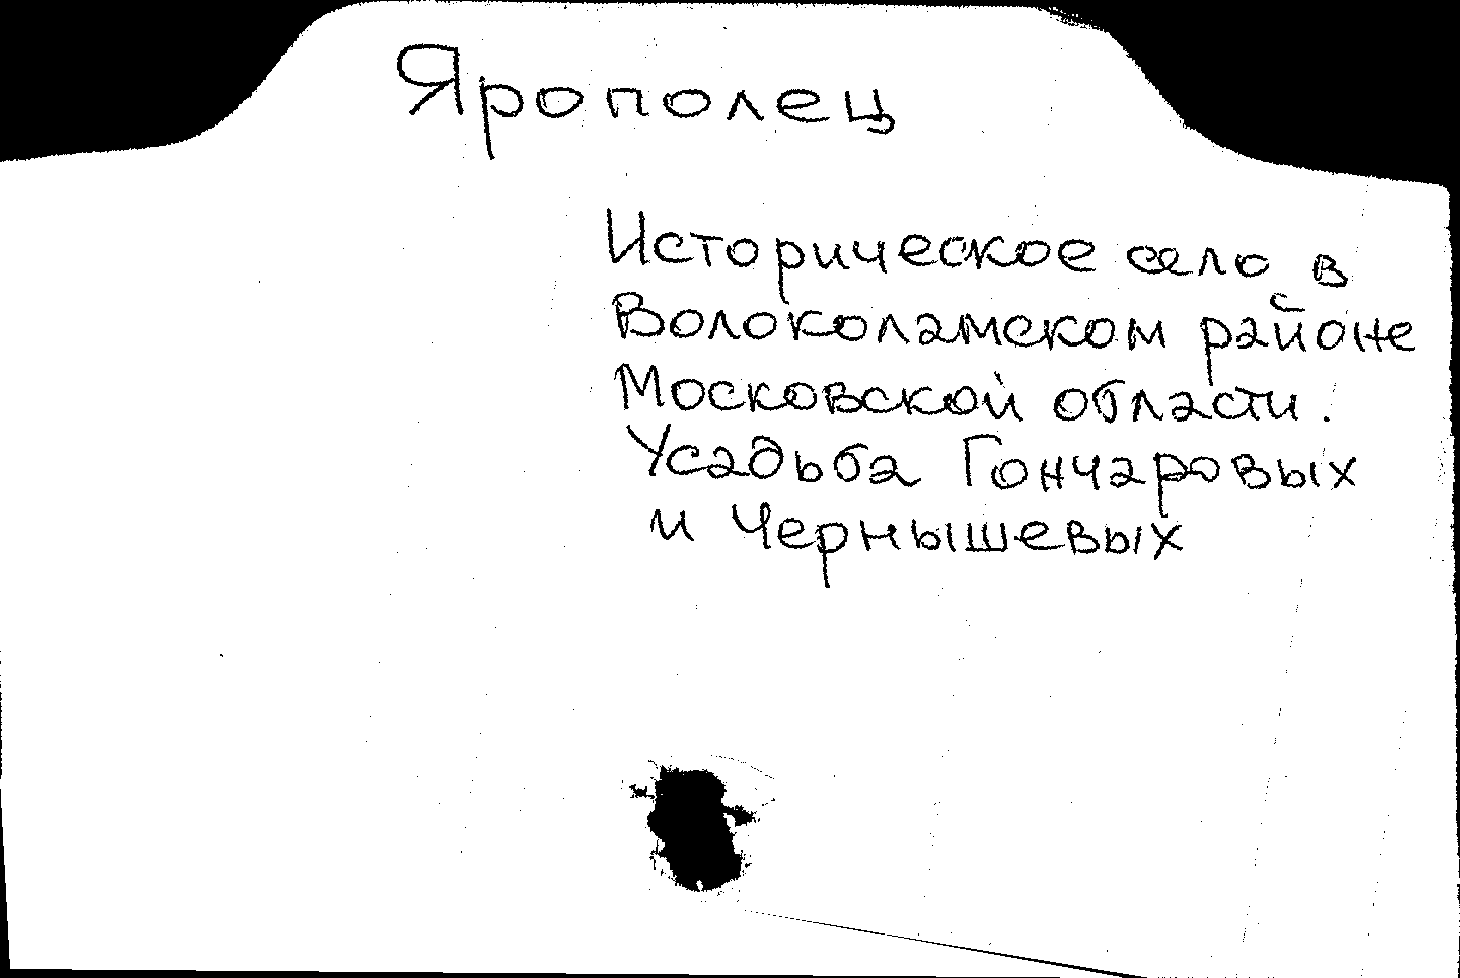 Ярополец
Историческое село в
Волоколамском районе
Московской области.
Усадьба Гончаровых
и Чернышевых